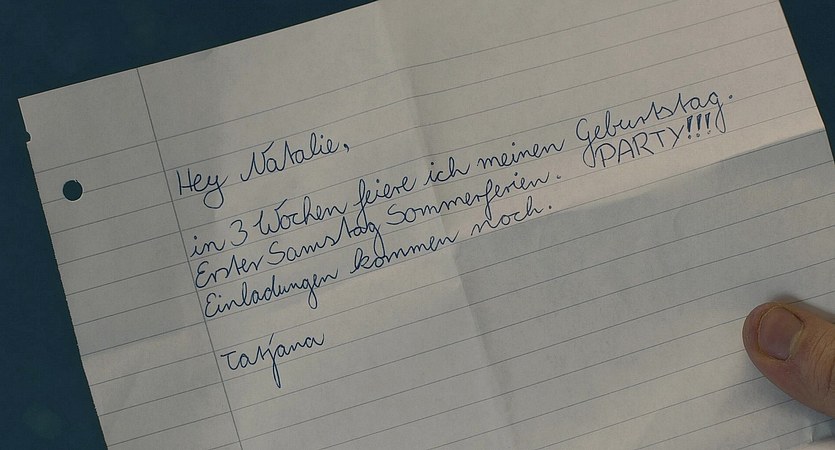 Hey Natalie,
in 3 Wochen feiere ich meinen Geburtstag.
Erster Samstag Sommerferien. PARTY!!!
Einladungen kommen noch.
Tatjana